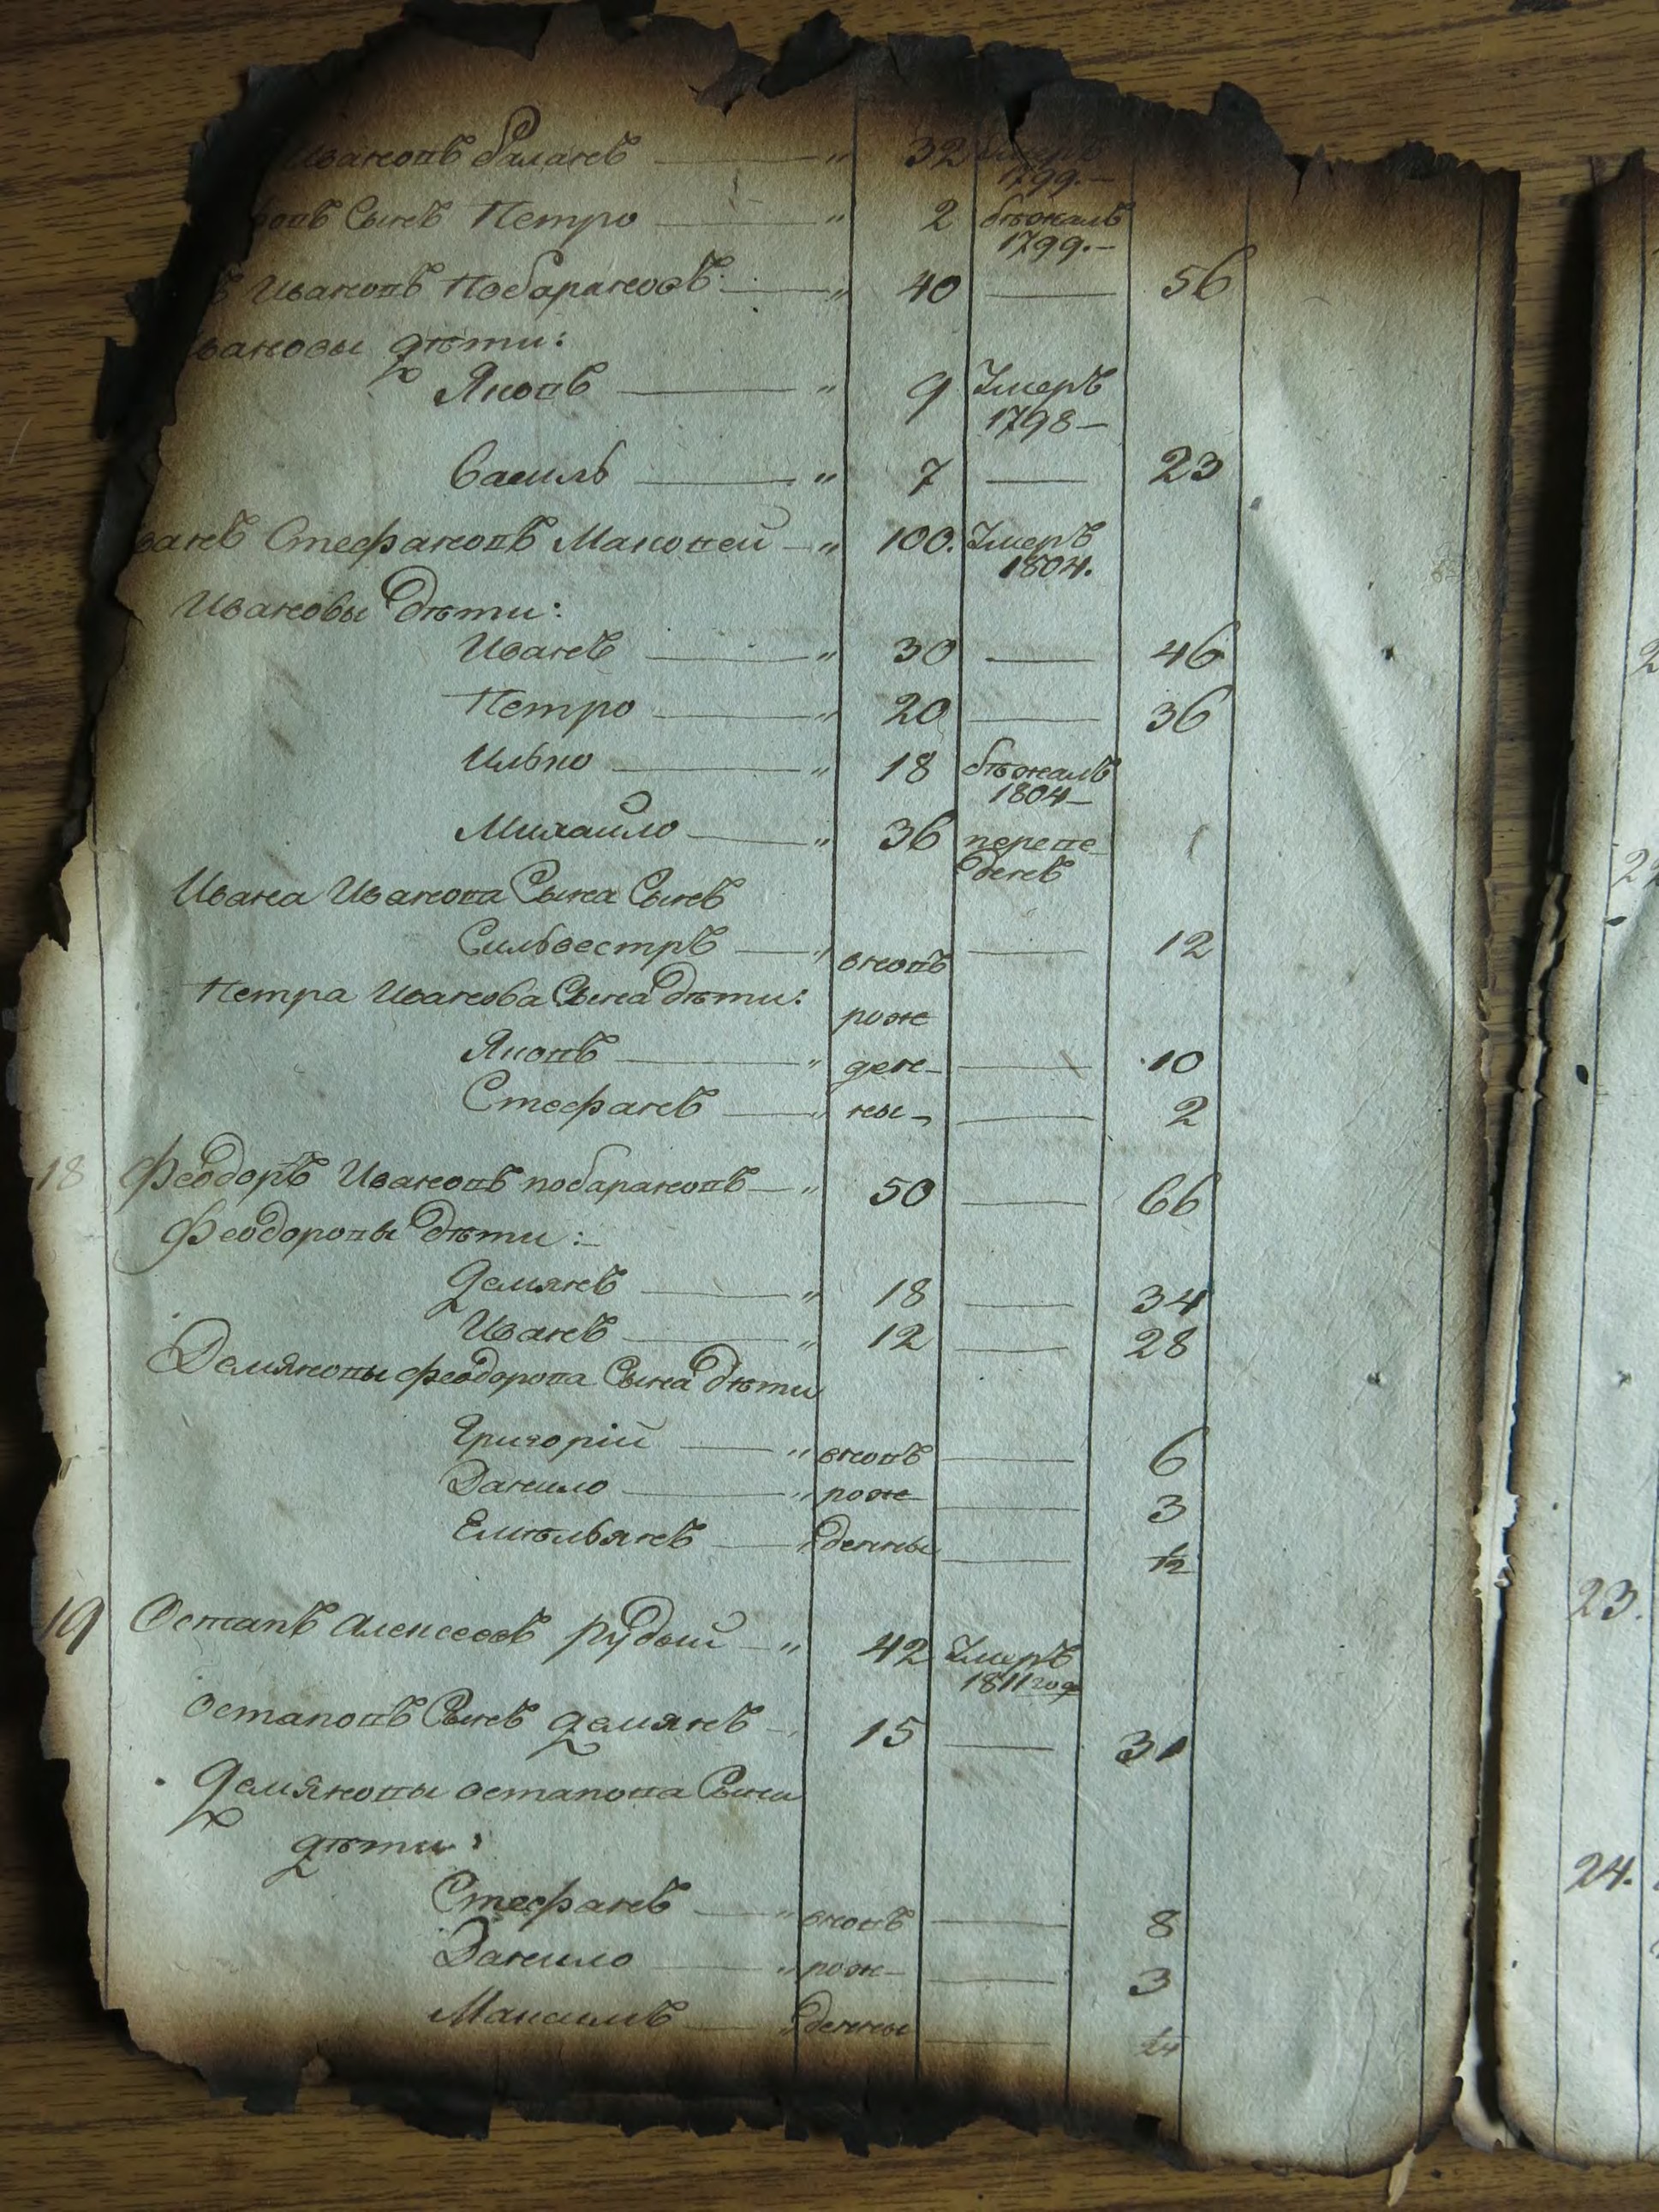 Ивановъ Баланъ — " 32 умеръ
1799.—
ровъ Сынъ Петро — " 2 бѣжалъ
1799.—
ъ Ивановъ Побарановъ — " 40 — 56
вановы дѣти:
Яковъ — " 9 Умеръ
1798—
Василь — " 7 — 23
ванъ Стефановъ Маковей — " 100. Умеръ
1804.
Ивановы дѣти:
Иванъ — " 30 — 46
Петро — " 20 — 36
Илько — " 18 бѣжалъ
1804—
Михайло — " 36 переве
денъ
Ивана Иванова Сына Сынъ
Сильвестръ — " вновъ — 12
Петра Иванова Сына дѣти: рож
Яковъ — " ден- — 10
Стефанъ — " ны- — 2
18 Феодоръ Ивановъ побарановъ — " 50 — 66
Феодоровы дѣти:—
Демянъ — " 18 — 34
Иванъ — " 12 — 28
Демяновы феодорова Сына дѣти
Григорій — " вновъ — 6
Данило — " рож- — 3
Емѣльянъ — " денны — 1/2
19 Остапъ Алексеевъ Рудый — " 42 Умеръ
1811 год
остаповъ Сынъ Демянъ — 15 — 31
Демяновы остапова Сына
дѣти:
Стефанъ — " вновъ — 8
Данило — " рож- — 3
Максимъ — " денны — 1/4
23.
24.